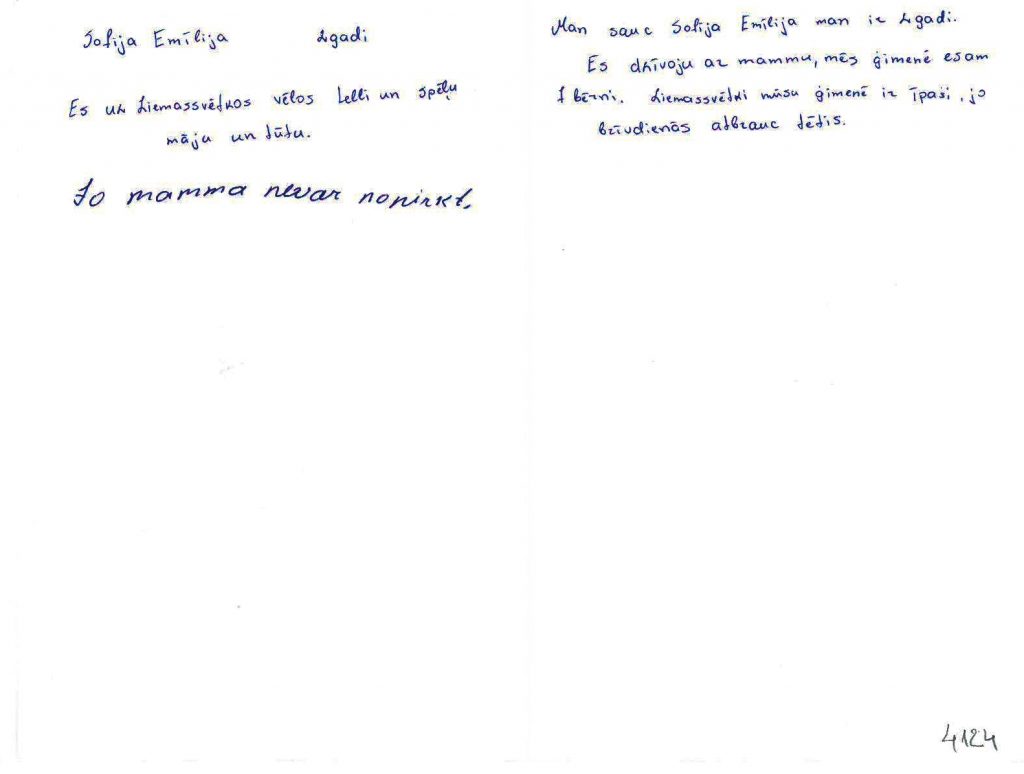 Sofija Emīlija 2gadi
Es uz Ziemassvētkos vēlos Lelli un spēļu
māju un tūtu.
Jo mamma nevar nopirkt.
Man sauc Sofija Emīlija man ir 2gadi.
Es dzīvoju ar mammu, mēs ģimenē esam
bērni. Ziemassvētki mūsu ģimenē ir īpaši, jo
brīvdienās atbrauc tētis.
4124